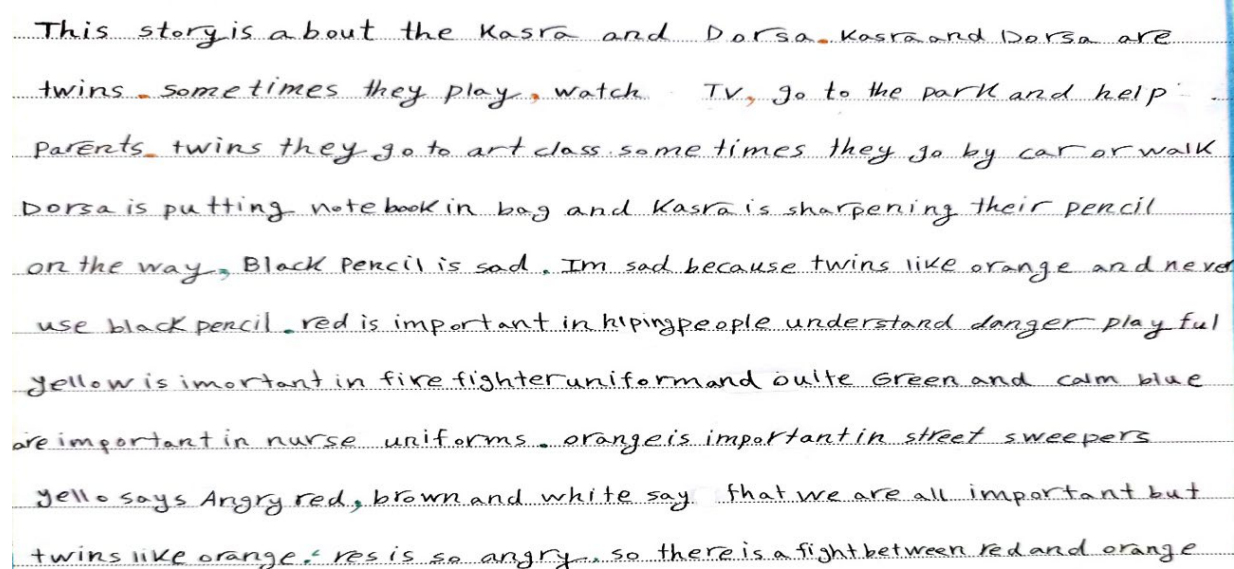 This story is about the Kasra and Dorsa. Kasra and Dorsa are
twins. sometimes they play, watch TV, go to the park and help
Parents. twins they go to art class. some times they go by car or walk
Dorsa is putting note book in bag and Kasra is sharpening their pencil
on the way, Black Pencil is sad. Im sad because twins like orange and never
use black pencil. red is important in hlping people understand danger play ful
yellow is imortant in fire fighter uniform and quite Green and calm blue
are important in nurse uniforms. orange is important in street sweepers
yello says Angry red, brown and white say that we are all important but
twins like orange. res is so angry. so there is a fight between red and orange